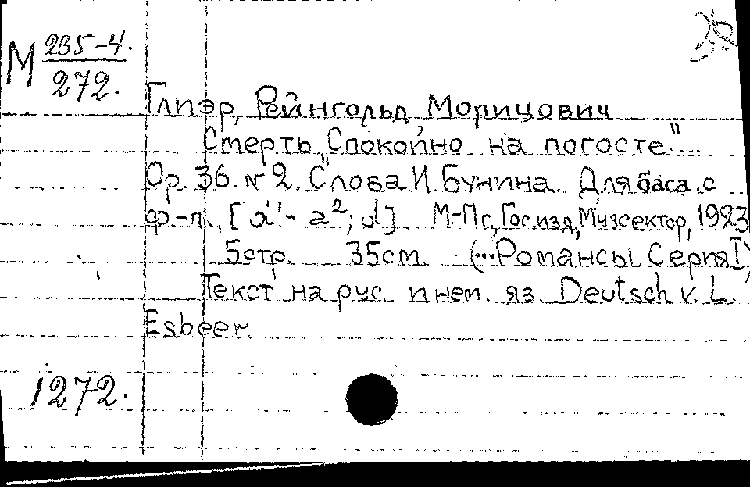 М 235-4.
272.
Глиэр, Рейнгольд Морицович
Смерть „Спокойно на погосте"
Op. 36. № 2. Слова И. Бунина. Для баса с
ф-п. [a¹-a²; d] М-Пг, Госизд, Музсектор, 1923
5 стр. 35 см. (... Романсы Серия I)
Текст на рус. и нем. яз. Deutsch v. L.
Esbeer.
1272.